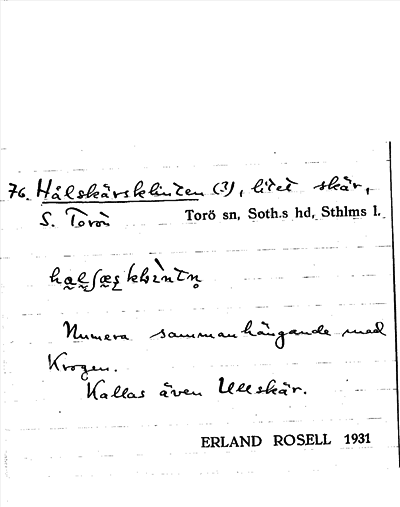 76. Hålskärsklinten (3), litet skär,
S. Torö Torö sn, Soth.s hd, Sthlms l.
Numera sammanhängande med
Krogen.
Kallas även Ullskär.
ERLAND ROSELL 1931